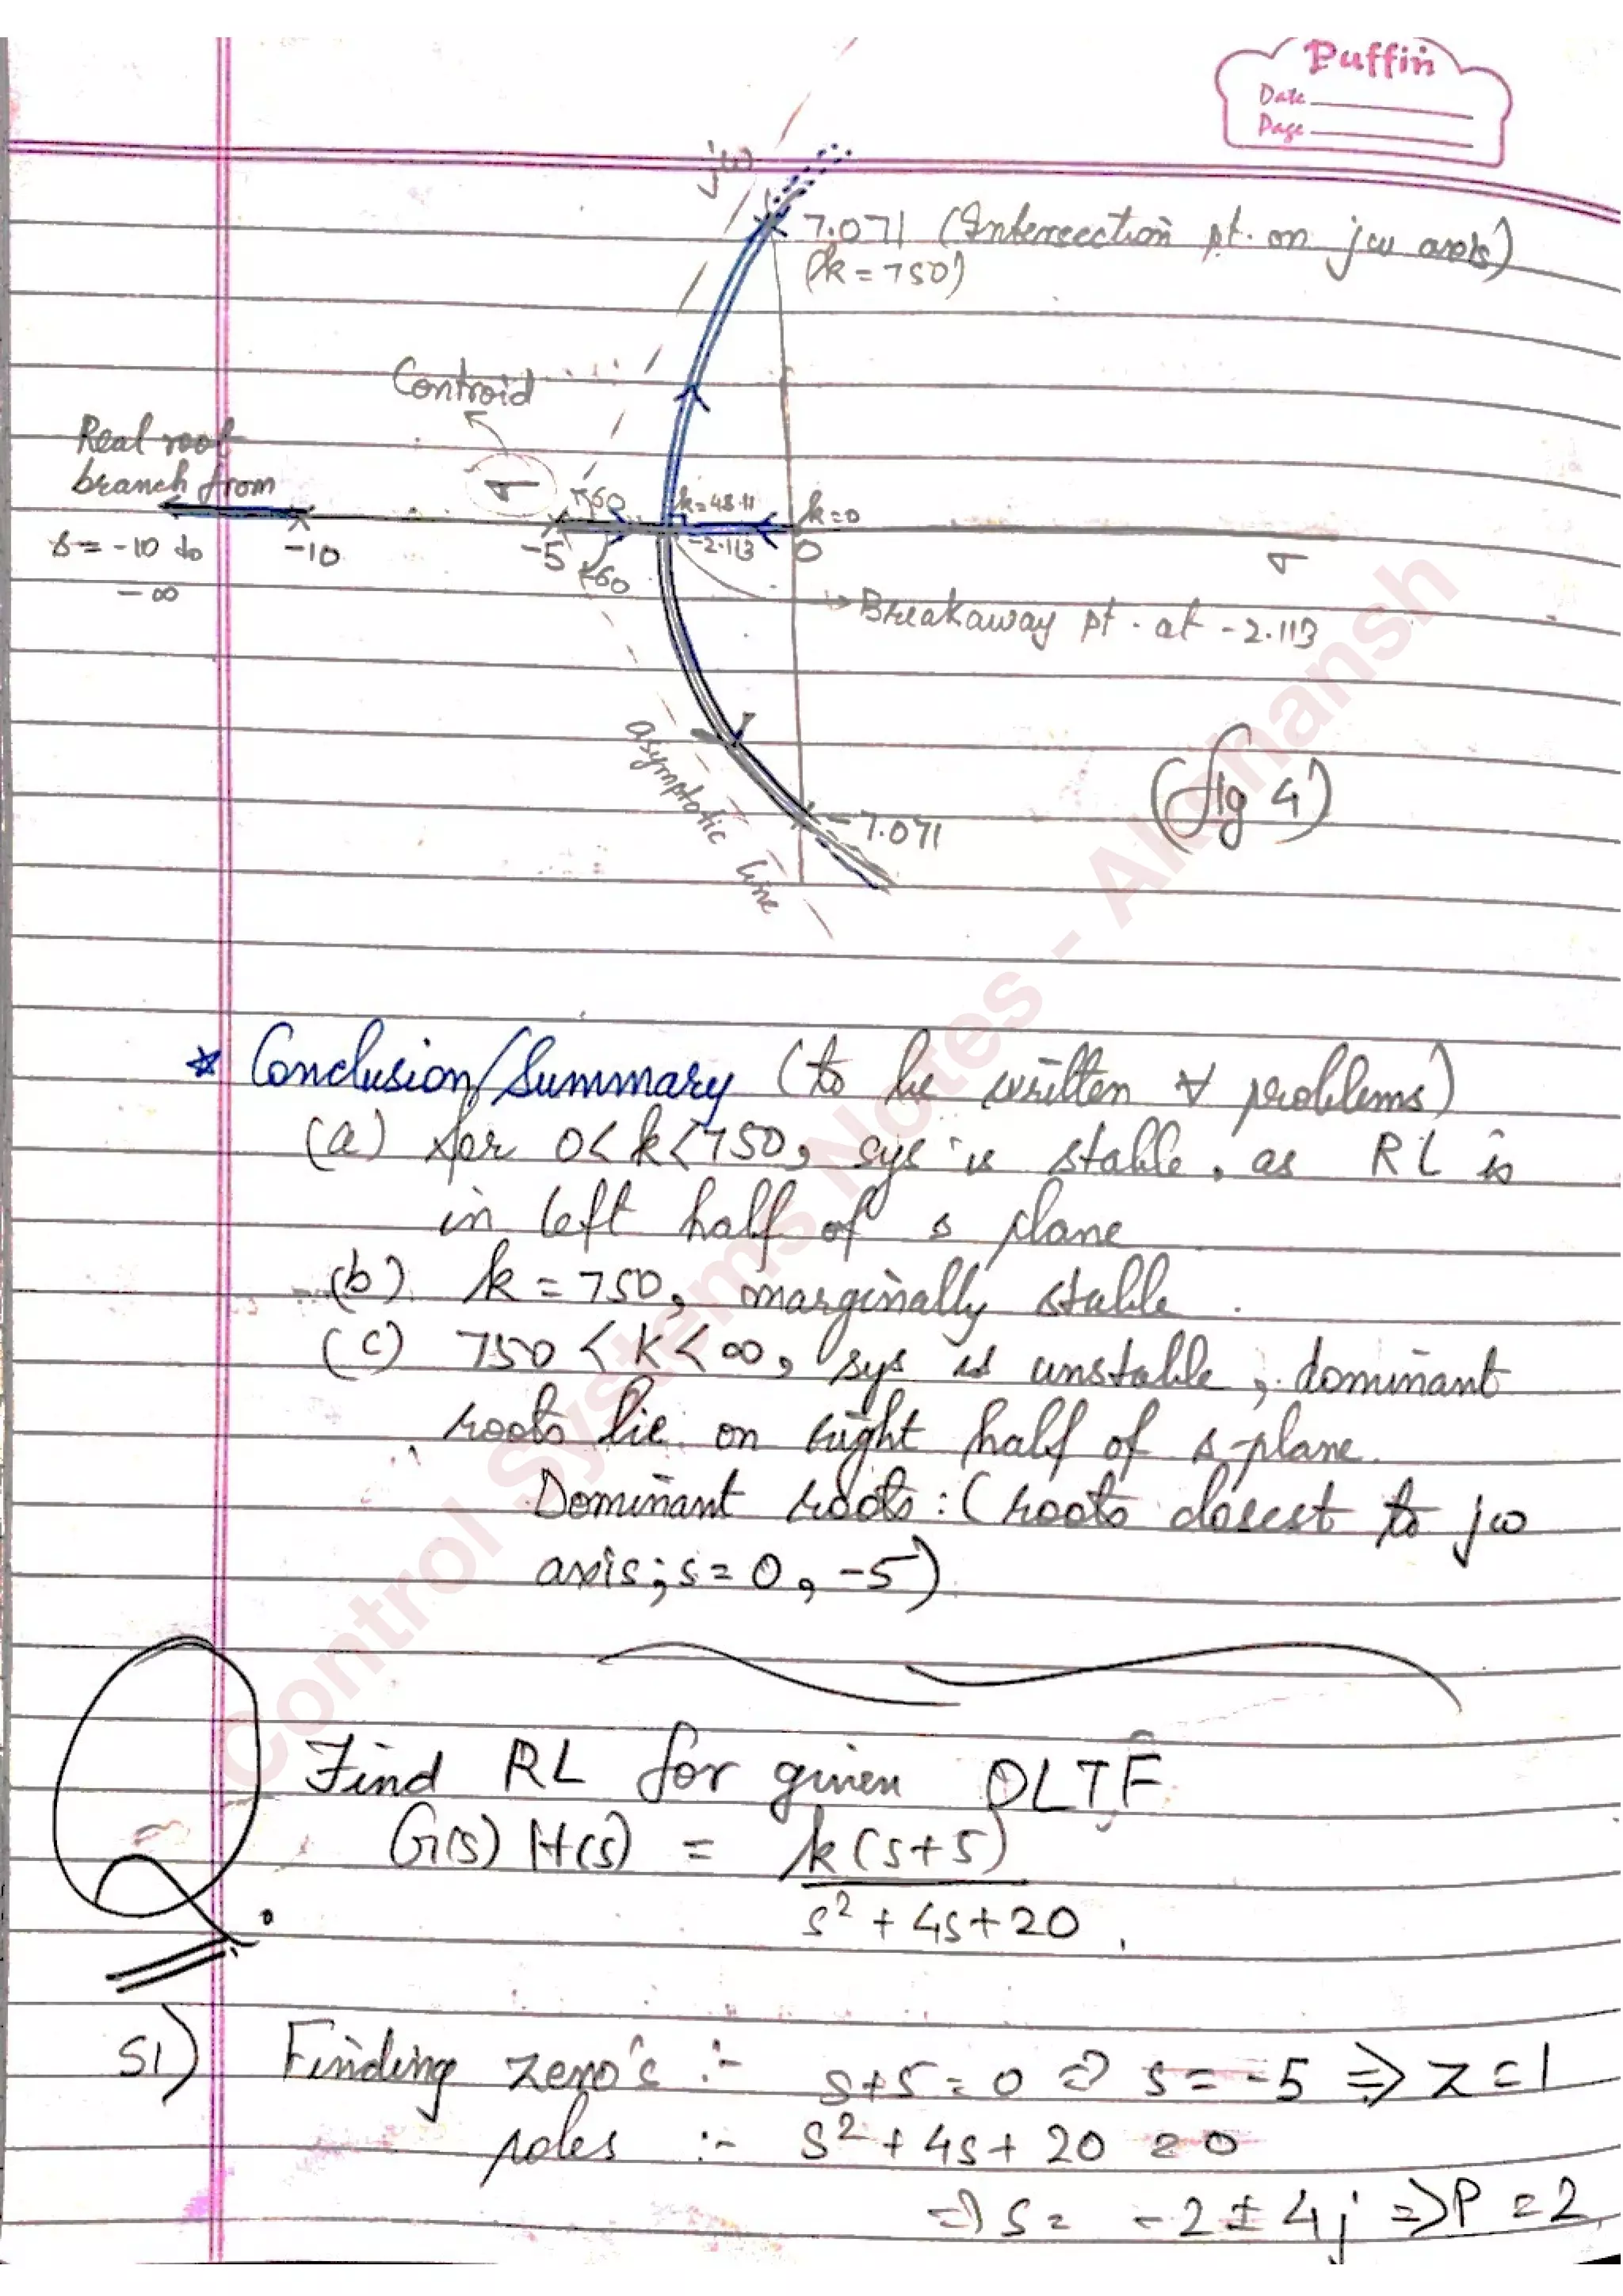 Puffin
Date
Page
jω
7.071 (Intersection pt. on jω axis)
(k=750)
Centroid
Real root
branch from
s = -10 to
-∞
-10
σ
-5
60
60
k=48.11
-2.113
k=0
0
σ
Breakaway pt. at -2.113
asymptotic line
-7.071
(fig 4)
* Conclusion/Summary (to be written ∀ problems)
(a) for 0<k<750, sys is stable, as RL is
in left half of s plane
(b) k=750, marginally stable.
(c) 750<k<∞, sys is unstable, dominant
roots lie on right half of s-plane.
Dominant roots: (roots closest to jω
axis; s=0, -5)
Q.
Find RL for given OLTF
G(s) H(s) = k(s+5)
s²+4s+20.
S1) Finding zero's :- s+5=0 ⇒ s=-5 ⇒ z=1
poles :- s²+4s+20=0
⇒ s= -2±4j ⇒ P=2
Control Systems Notes - Akshansh